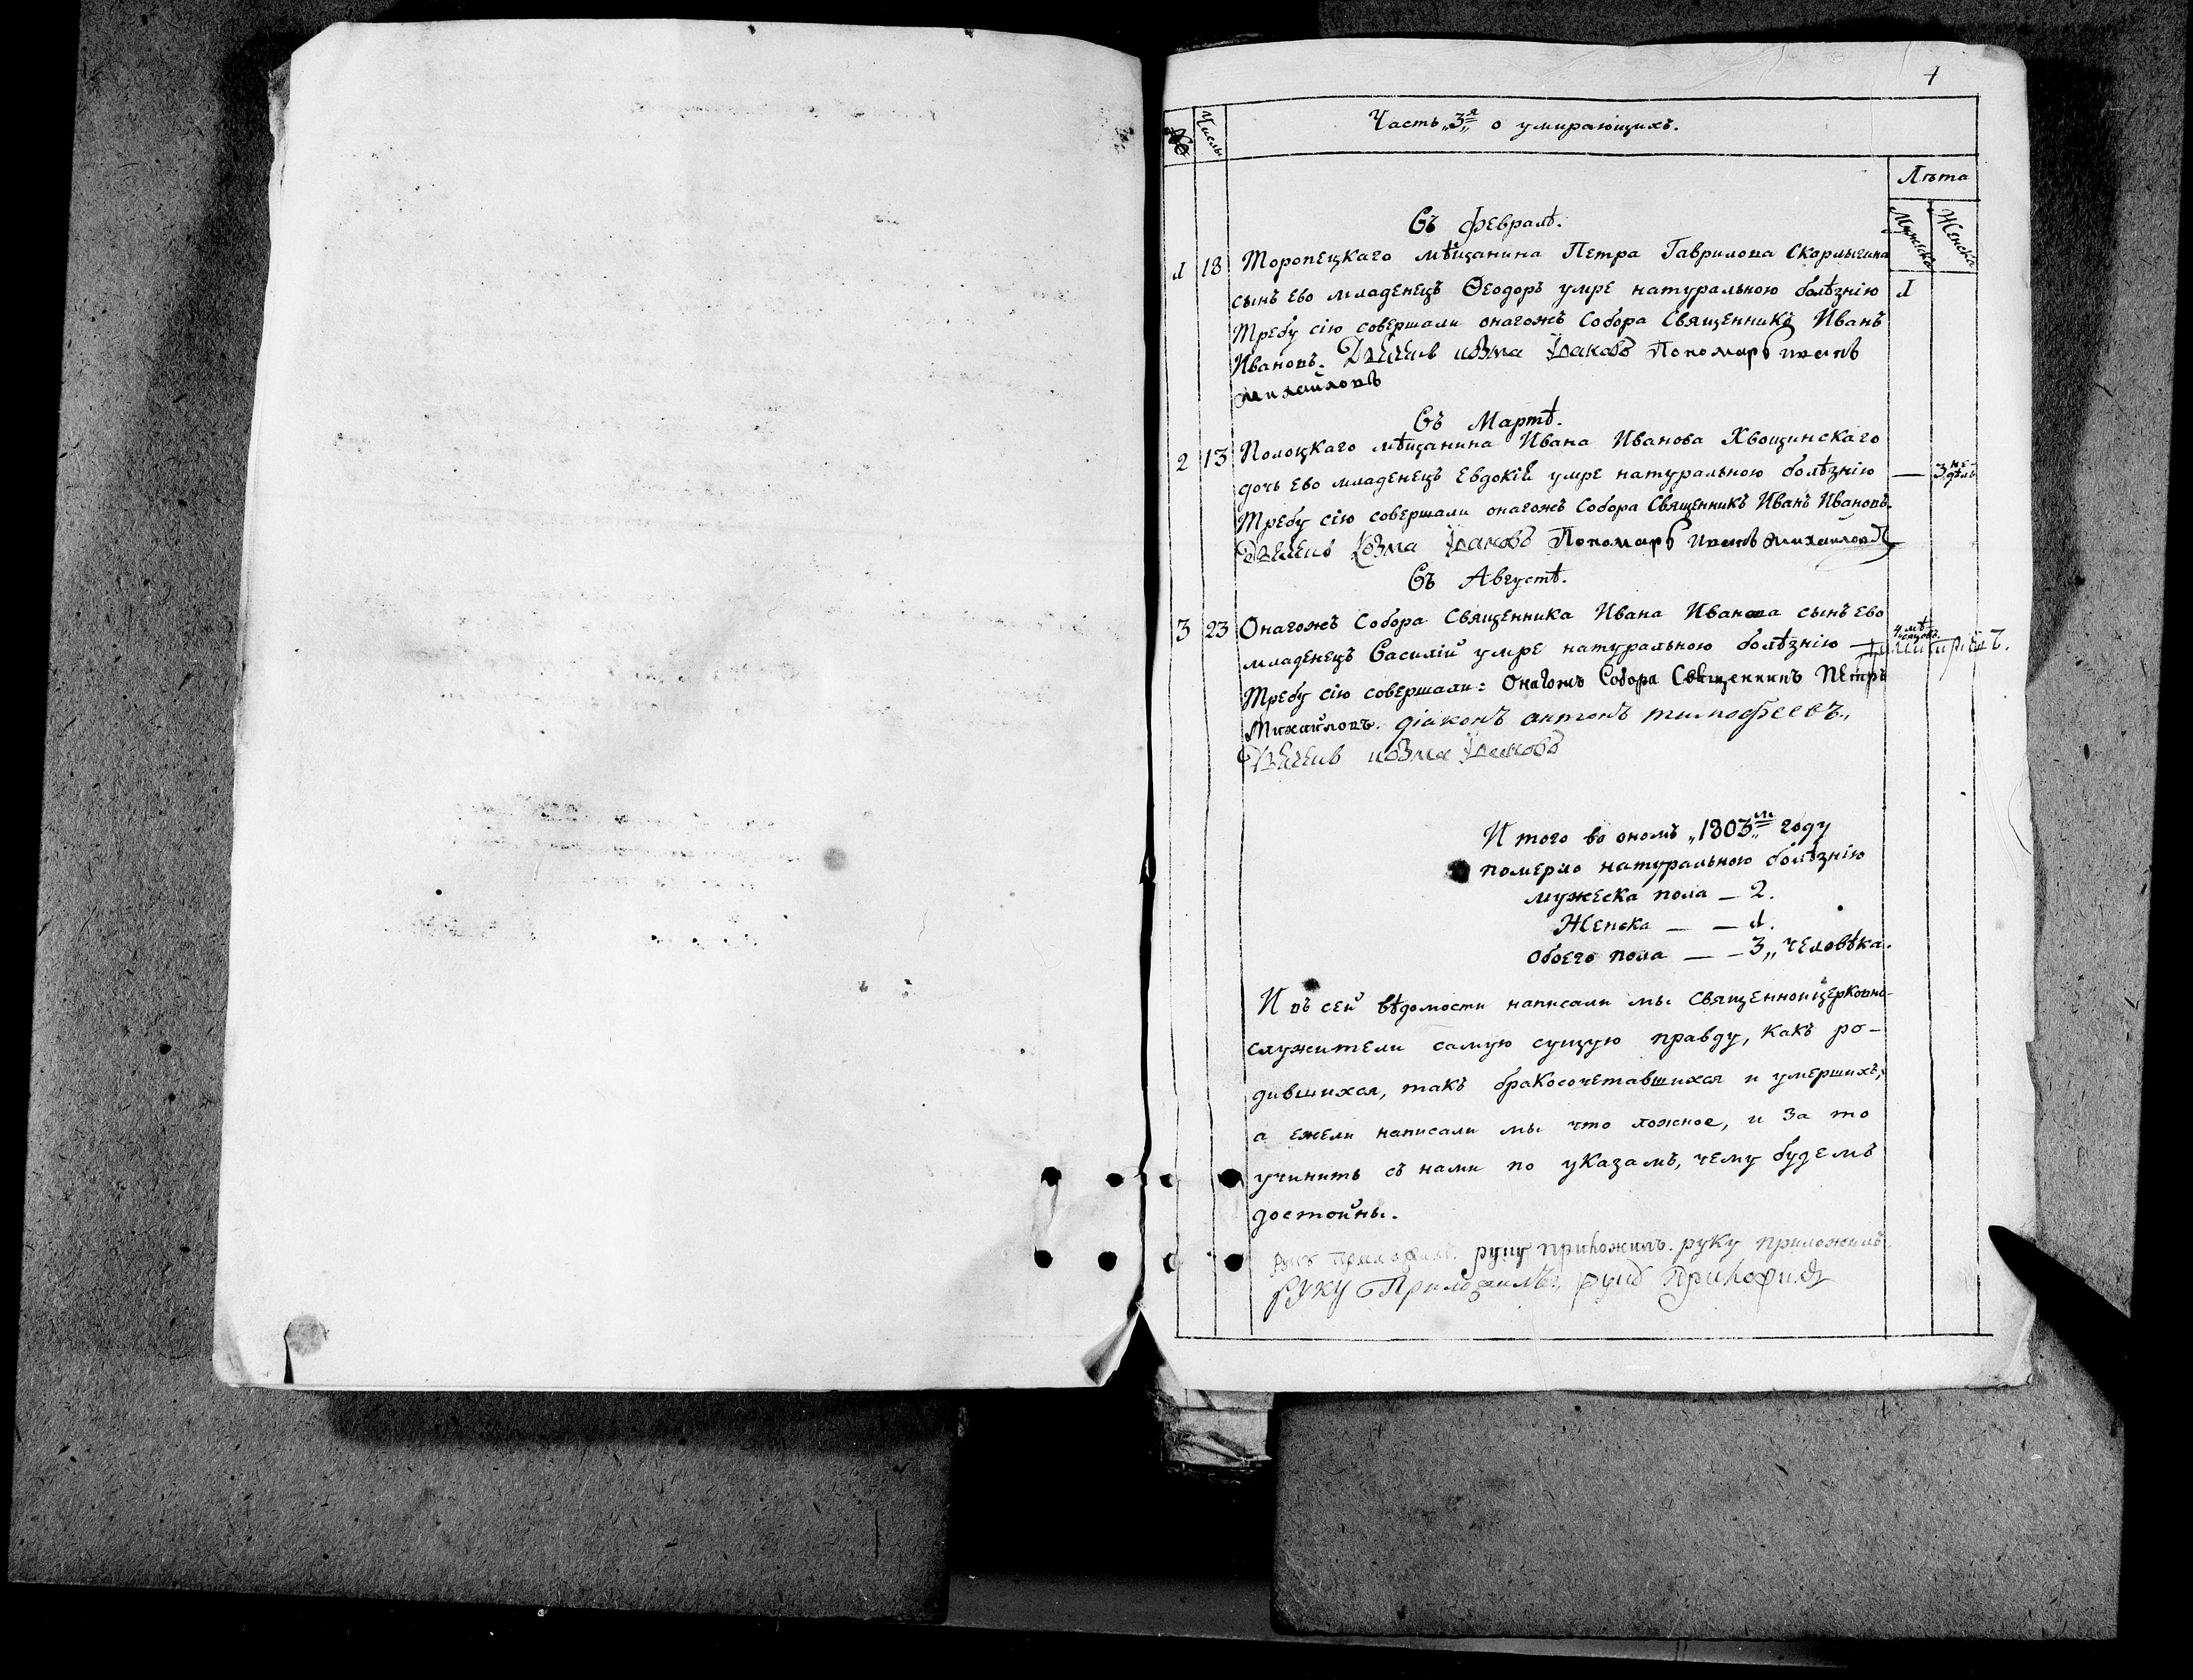 4
№
Числы
Часть „3я„ о умирающихъ.
Лѣта
Мужеска
Женска
Въ Февралѣ.
1 18 Торопецкаго мѣщанина Петра Гаврилова Скарлыгина
сынъ ево младенецъ Ѳеодоръ умре натуральною болѣзнію 1
Требу сію совершали онагожъ Собора Священникъ Иванъ
Ивановъ. Дьячекъ козма Яаковъ Пономарь иванъ
михайловъ
Въ Мартѣ.
2 13 Полоцкаго мѣщанина Ивана Иванова Хвощинскаго
дочь ево младенецъ Евдокій умре натуральною болѣзнію — 3 недѣль
Требу сію совершали онагожъ Собора Священникъ Иванъ Ивановъ.
Дьячекъ Козма Яаковъ Пономарь иванъ михайловъ
Въ Августѣ.
3 23 Онагожъ Собора Священника Ивана Иванова сынъ ево
младенецъ Василій умре натуральною болѣзнію — 4 мѣсяцовъ.
Требу сію совершали: Онагожъ Собора Священникъ Петръ
Михайловъ. діаконъ антонъ тимофеевъ„
Дьячекъ козма Яаковъ
Итого во ономъ „1803м„ году
померло натуральною болѣзнію
мужеска пола — 2.
Женска — — 1.
обоего пола — — 3„ человѣка.
И въ сей вѣдомости написали мы священноицерковно-
служители самую сущую правду, какъ ро-
дившихся, такъ бракосочетавшихся и умершихъ,
а ежели написали мы что ложное, и за то
учинить съ нами по указамъ, чему будемъ
достойны.
руку приложилъ. руку приложилъ
руку Приложилъ„